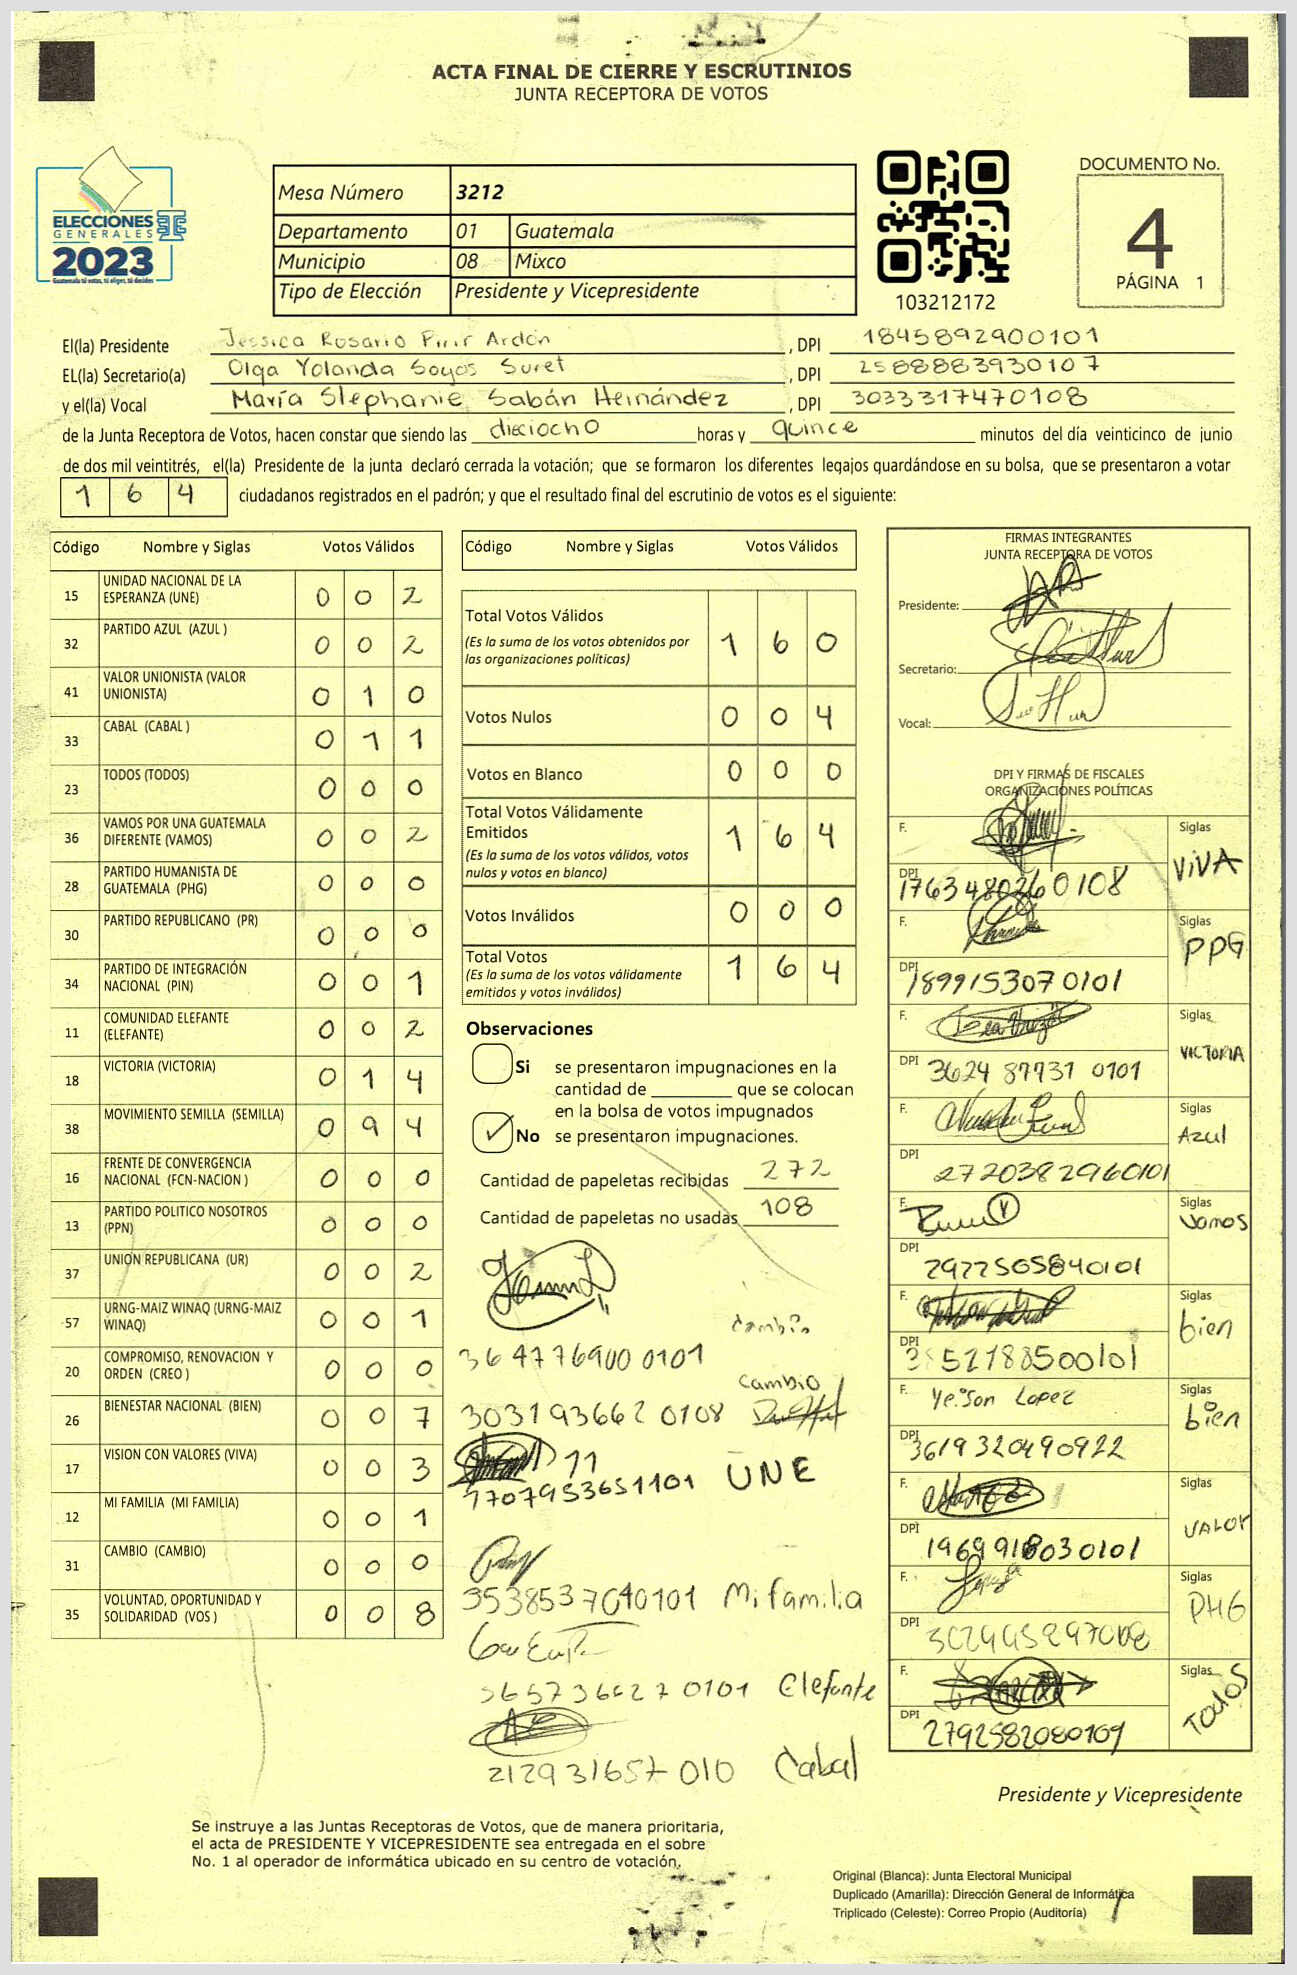 ACTA FINAL DE CIERRE Y ESCRUTINIOS
JUNTA RECEPTORA DE VOTOS
ELECCIONES
GENERALES
2023
Guatemala tú votas, tú eliges, tú decides
Mesa Número 3212
Departamento 01 Guatemala
Municipio 08 Mixco
Tipo de Elección Presidente y Vicepresidente
103212172
DOCUMENTO No.
4
PÁGINA 1
El(la) Presidente Jessica Rosario Pirir Ardón, DPI 1845892900101
EL(la) Secretario(a) Olga Yolanda Soyos Suret, DPI 2588883930107
y el(la) Vocal María Stephanie Sabán Hernández, DPI 3033317470108
de la Junta Receptora de Votos, hacen constar que siendo las dieciocho horas y quince minutos del día veinticinco de junio
de dos mil veintitrés, el(la) Presidente de la junta declaró cerrada la votación; que se formaron los diferentes legajos guardándose en su bolsa, que se presentaron a votar
1 6 4 ciudadanos registrados en el padrón; y que el resultado final del escrutinio de votos es el siguiente:
Código Nombre y Siglas Votos Válidos
15 UNIDAD NACIONAL DE LA ESPERANZA (UNE) 0 0 2
32 PARTIDO AZUL (AZUL ) 0 0 2
41 VALOR UNIONISTA (VALOR UNIONISTA) 0 1 0
33 CABAL (CABAL ) 0 1 1
23 TODOS (TODOS) 0 0 0
36 VAMOS POR UNA GUATEMALA DIFERENTE (VAMOS) 0 0 2
28 PARTIDO HUMANISTA DE GUATEMALA (PHG) 0 0 0
30 PARTIDO REPUBLICANO (PR) 0 0 0
34 PARTIDO DE INTEGRACIÓN NACIONAL (PIN) 0 0 1
11 COMUNIDAD ELEFANTE (ELEFANTE) 0 0 2
18 VICTORIA (VICTORIA) 0 1 4
38 MOVIMIENTO SEMILLA (SEMILLA) 0 9 4
16 FRENTE DE CONVERGENCIA NACIONAL (FCN-NACION ) 0 0 0
13 PARTIDO POLITICO NOSOTROS (PPN) 0 0 0
37 UNION REPUBLICANA (UR) 0 0 2
57 URNG-MAIZ WINAQ (URNG-MAIZ WINAQ) 0 0 1
20 COMPROMISO, RENOVACION Y ORDEN (CREO ) 0 0 0
26 BIENESTAR NACIONAL (BIEN) 0 0 7
17 VISION CON VALORES (VIVA) 0 0 3
12 MI FAMILIA (MI FAMILIA) 0 0 1
31 CAMBIO (CAMBIO) 0 0 0
35 VOLUNTAD, OPORTUNIDAD Y SOLIDARIDAD (VOS ) 0 0 8
Código Nombre y Siglas Votos Válidos
Total Votos Válidos 1 6 0
(Es la suma de los votos obtenidos por
las organizaciones políticas)
Votos Nulos 0 0 4
Votos en Blanco 0 0 0
Total Votos Válidamente
Emitidos 1 6 4
(Es la suma de los votos válidos, votos
nulos y votos en blanco)
Votos Inválidos 0 0 0
Total Votos 1 6 4
(Es la suma de los votos válidamente
emitidos y votos inválidos)
Observaciones
Si se presentaron impugnaciones en la
cantidad de ________ que se colocan
en la bolsa de votos impugnados
No se presentaron impugnaciones.
Cantidad de papeletas recibidas 272
Cantidad de papeletas no usadas 108
cambio
3647769000101
cambio
3031936620108
11
1707953651101 UNE
3538537040101 Mi familia
0101 Elefante
212931657 010 Cabal
FIRMAS INTEGRANTES
JUNTA RECEPTORA DE VOTOS
Presidente:
Secretario:
Vocal:
DPI Y FIRMAS DE FISCALES
ORGANIZACIONES POLÍTICAS
F. Siglas
DPI 1763480260108 VIVA
F. Siglas
DPI 1899153070101 PPG
F. Siglas
DPI 3624 87731 0101 VICTORIA
F. Siglas
DPI 2720382960101 Azul
F. Siglas
DPI 2977565840101 Vamos
F. Siglas
DPI 3852188500101 bien
F. Yeison Lopez Siglas
DPI 3619320490922 bien
F. Siglas
DPI 1969918030101 VALOR
F. Siglas
DPI PHG
F. Siglas
DPI 2792582080109 TODOS
Presidente y Vicepresidente
Se instruye a las Juntas Receptoras de Votos, que de manera prioritaria,
el acta de PRESIDENTE Y VICEPRESIDENTE sea entregada en el sobre
No. 1 al operador de informática ubicado en su centro de votación.
Original (Blanca): Junta Electoral Municipal
Duplicado (Amarilla): Dirección General de Informática
Triplicado (Celeste): Correo Propio (Auditoría)